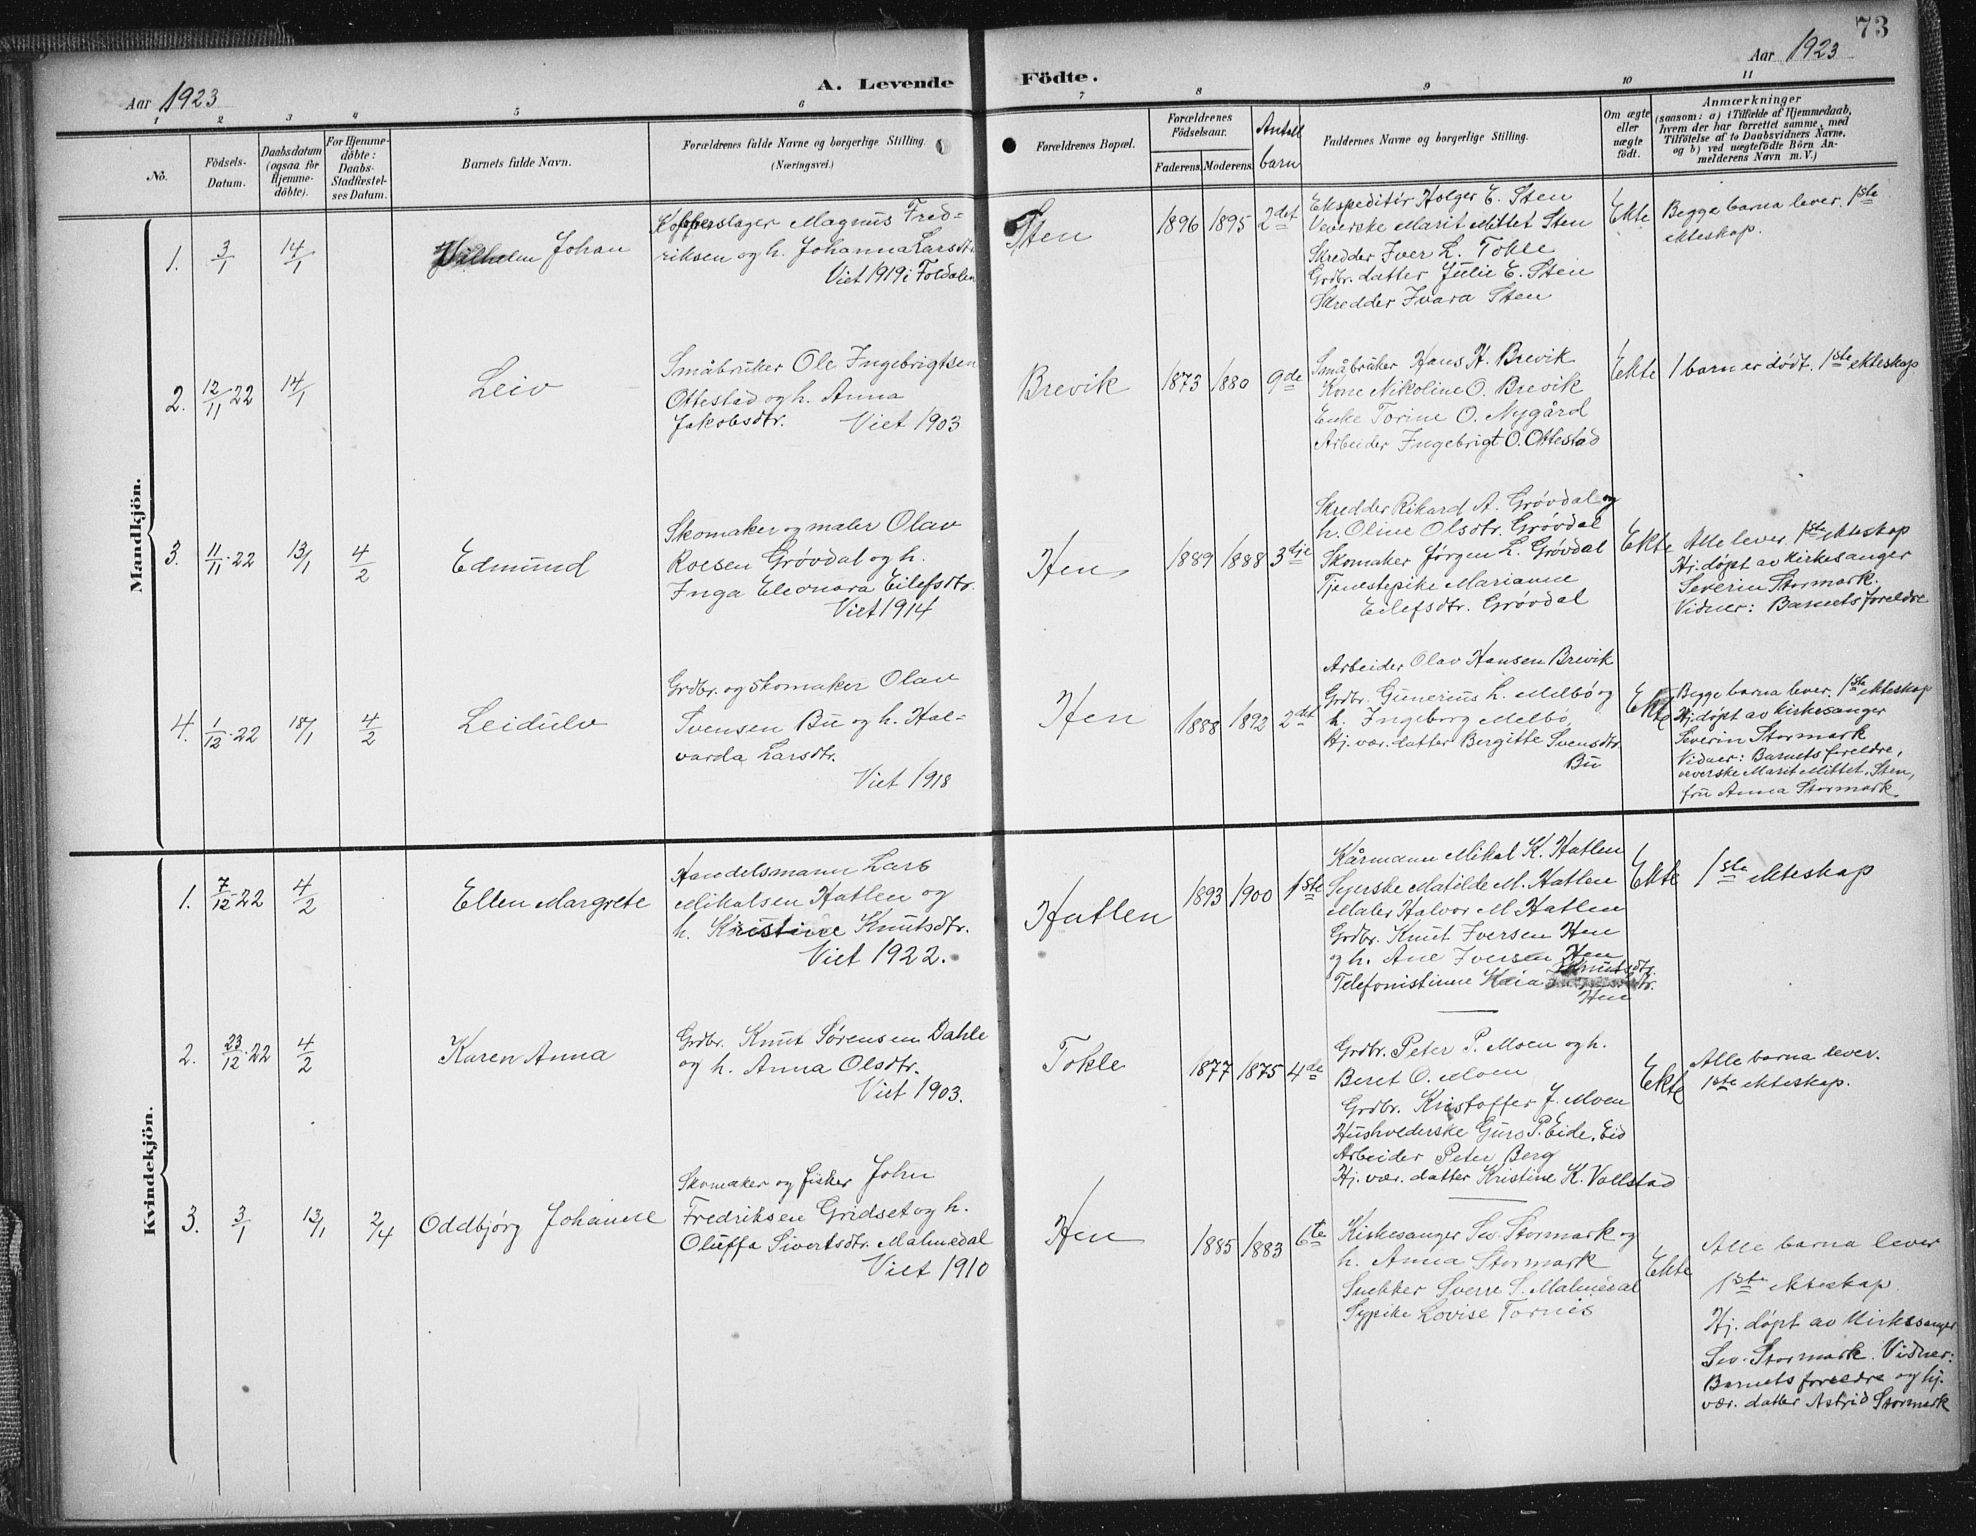 73
Aar 1923
A. Levende Födte.
Aar 1923
1 2 3 4 5 6 7 8 9 10 11
No.
Födsels-
Datum.
Daabsdatum
(ogsaa for
Hjemme-
döbte).
For Hjemme-
döbte:
Daabs-
Stadfæstel-
ses Datum.
Barnets fulde Navn.
Forældrenes fulde Navne og borgerlige Stilling.
(Næringsvei.)
Forældrenes Bopæl.
Forældrenes
Födselsaar.
Faderens. Moderens.
Antall
barn
Faddernes Navne og borgerlige Stilling.
Om ægte
eller
uægte
födt.
Anmærkninger
(saasom: a) i Tilfælde af Hjemmedaab,
hvem der har forrettet samme, med
Tilföielse af to Daabsvidners Navne,
og b) ved uegtefödte Börn An-
melderens Navn m. V.)
Mandkjön.
1. 3/1 14/1
Vilhelm Johan
Kobberslager Magnus Fred-
riksen og h. Johanna Larsdtr.
Viet 1919 i Foldalen
Sten
1896 1895 2det
Ekspeditør Holger E. Sten
Veverske Marit Mittet Sten
Skredder Iver L. Tokle
Grdbr. datter Julie E. Sten
Skredder Ivara Sten
Ekte
Begge barna lever. 1ste
ekteskap.
2. 12/11-22 14/1
Leiv
Småbruker Ole Ingebrigtsen
Ottestad og h. Anna
Jakobsdtr. Viet 1903
Brevik
1873 1880 9de
Småbruker Hans H. Brevik
Kone Nikoline O. Brevik
Enke Torine O. Nygård
Arbeider Ingebrigt O. Ottestad
Ekte
1 barn er dødt. 1ste ekteskap
3. 11/11-22 13/1 4/2
Edmund
Skomaker og maler Olav
Roesen Grøvdal og h.
Inga Eleonora Eilefsdtr.
Viet 1914
Hen
1889 1888 3dje
Skredder Rikard A. Grøvdal og
h. Oline Olsdtr. Grøvdal
Skomaker Jørgen L. Grøvdal
Tjenestepike Marianne
Eilefsdtr. Grøvdal
Ekte
Alle lever. 1ste ekteskap
Hj. døpt av kirkesanger
Severin Stormark.
Vidner: Barnets foreldre
4. 1/12-22 18/1 4/2
Leidulv
Grdbr. og skomaker Olav
Svensen Bu og h. Hal-
varda Larsdtr.
Viet 1918
Hen
1888 1892 2det
Arbeider Olav Hansen Brevik
Grdbr. Gunerius L. Melbø og
h. Ingeborg Melbø
Hj. vær. datter Bergitte Svensdtr.
Bu
Ekte
Begge barna lever. 1ste ekteskap
Hj. døpt av kirkesanger
Severin Stormark
Vidner: Barnets foreldre,
veverske Marit Mittet, Sten,
fru Anna Stormark.
Kvindekjön.
1. 7/12-22 4/2
Ellen Margrete
Handelsmann Lars
Mikalsen Hatlen og
h. Kristine Knutsdtr.
Viet 1922.
Hatlen
1893 1900 1ste
Kårmann Mikal K. Hatlen
Syerske Matilde M. Hatlen
Maler Halvor M. Hatlen
Grdbr. Knut Iversen Hen
og h. Ane Iversen Hen
Knutsdtr.
Telefonistinne Kaia
Hen
Ekte
1ste ekteskap
2. 23/12-22 4/2
Karen Anna
Grdbr. Knut Sørensen Dahle
og h. Anna Olsdtr.
Viet 1903.
Tokle
1877 1875 4de
Grdbr. Peter P. Moen og h.
Beret O. Moen
Grdbr. Kristoffer J. Moen
Husholderske Guro P. Eide, Eid
Arbeider Peter Berg
Hj. vær. datter Kristine K. Vollstad
Ekte
Alle barna lever.
1ste ekteskap.
3. 3/1 13/1 2/4
Oddbjørg Johanne
Skomaker og fisker John
Fredriksen Gridset og h.
Oluffa Sivertsdtr. Malmedal
Viet 1910
Hen
1885 1883 6te
Kirkesanger Sev. Stormark og
h. Anna Stormark
Snekker Sverre S. Malmedal
Sypike Lovise Tornes
Ekte
Alle barna lever
1ste ekteskap.
Hj. døpt av kirkesanger
Sev. Stormark. Vidner:
Barnets foreldre og hj.
vær. datter Astrid Stormark